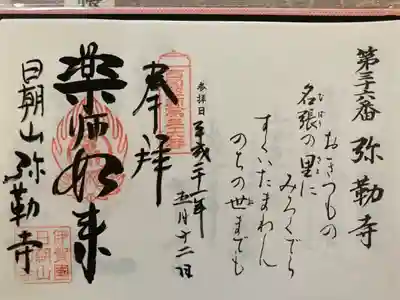 第三十六番 弥勒寺
おきつもの
名張の里に
みろくでら
すくいたまわん
のちの世までも
参拝日 平成二十一年
五月十二日
奉拝
薬師如来
日朝山弥勒寺
伊賀国
日朝山